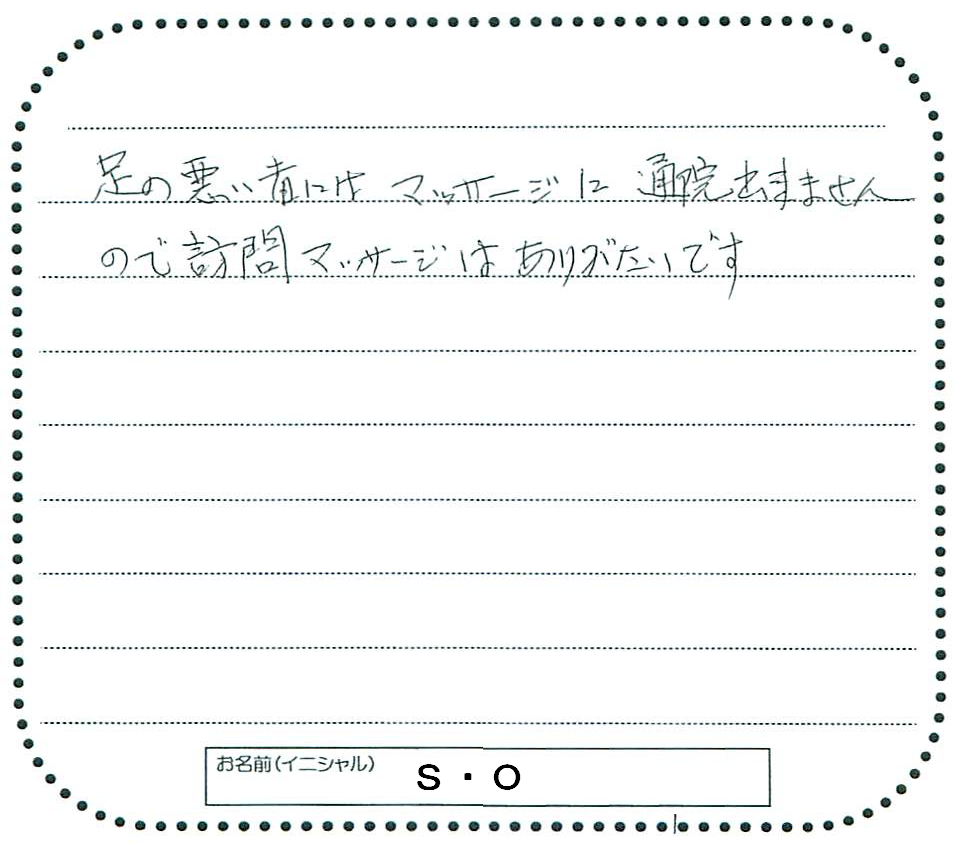 足の悪い者には マッサージに 通院出来ません
ので訪問マッサージは ありがたいです
お名前(イニシャル) S・O